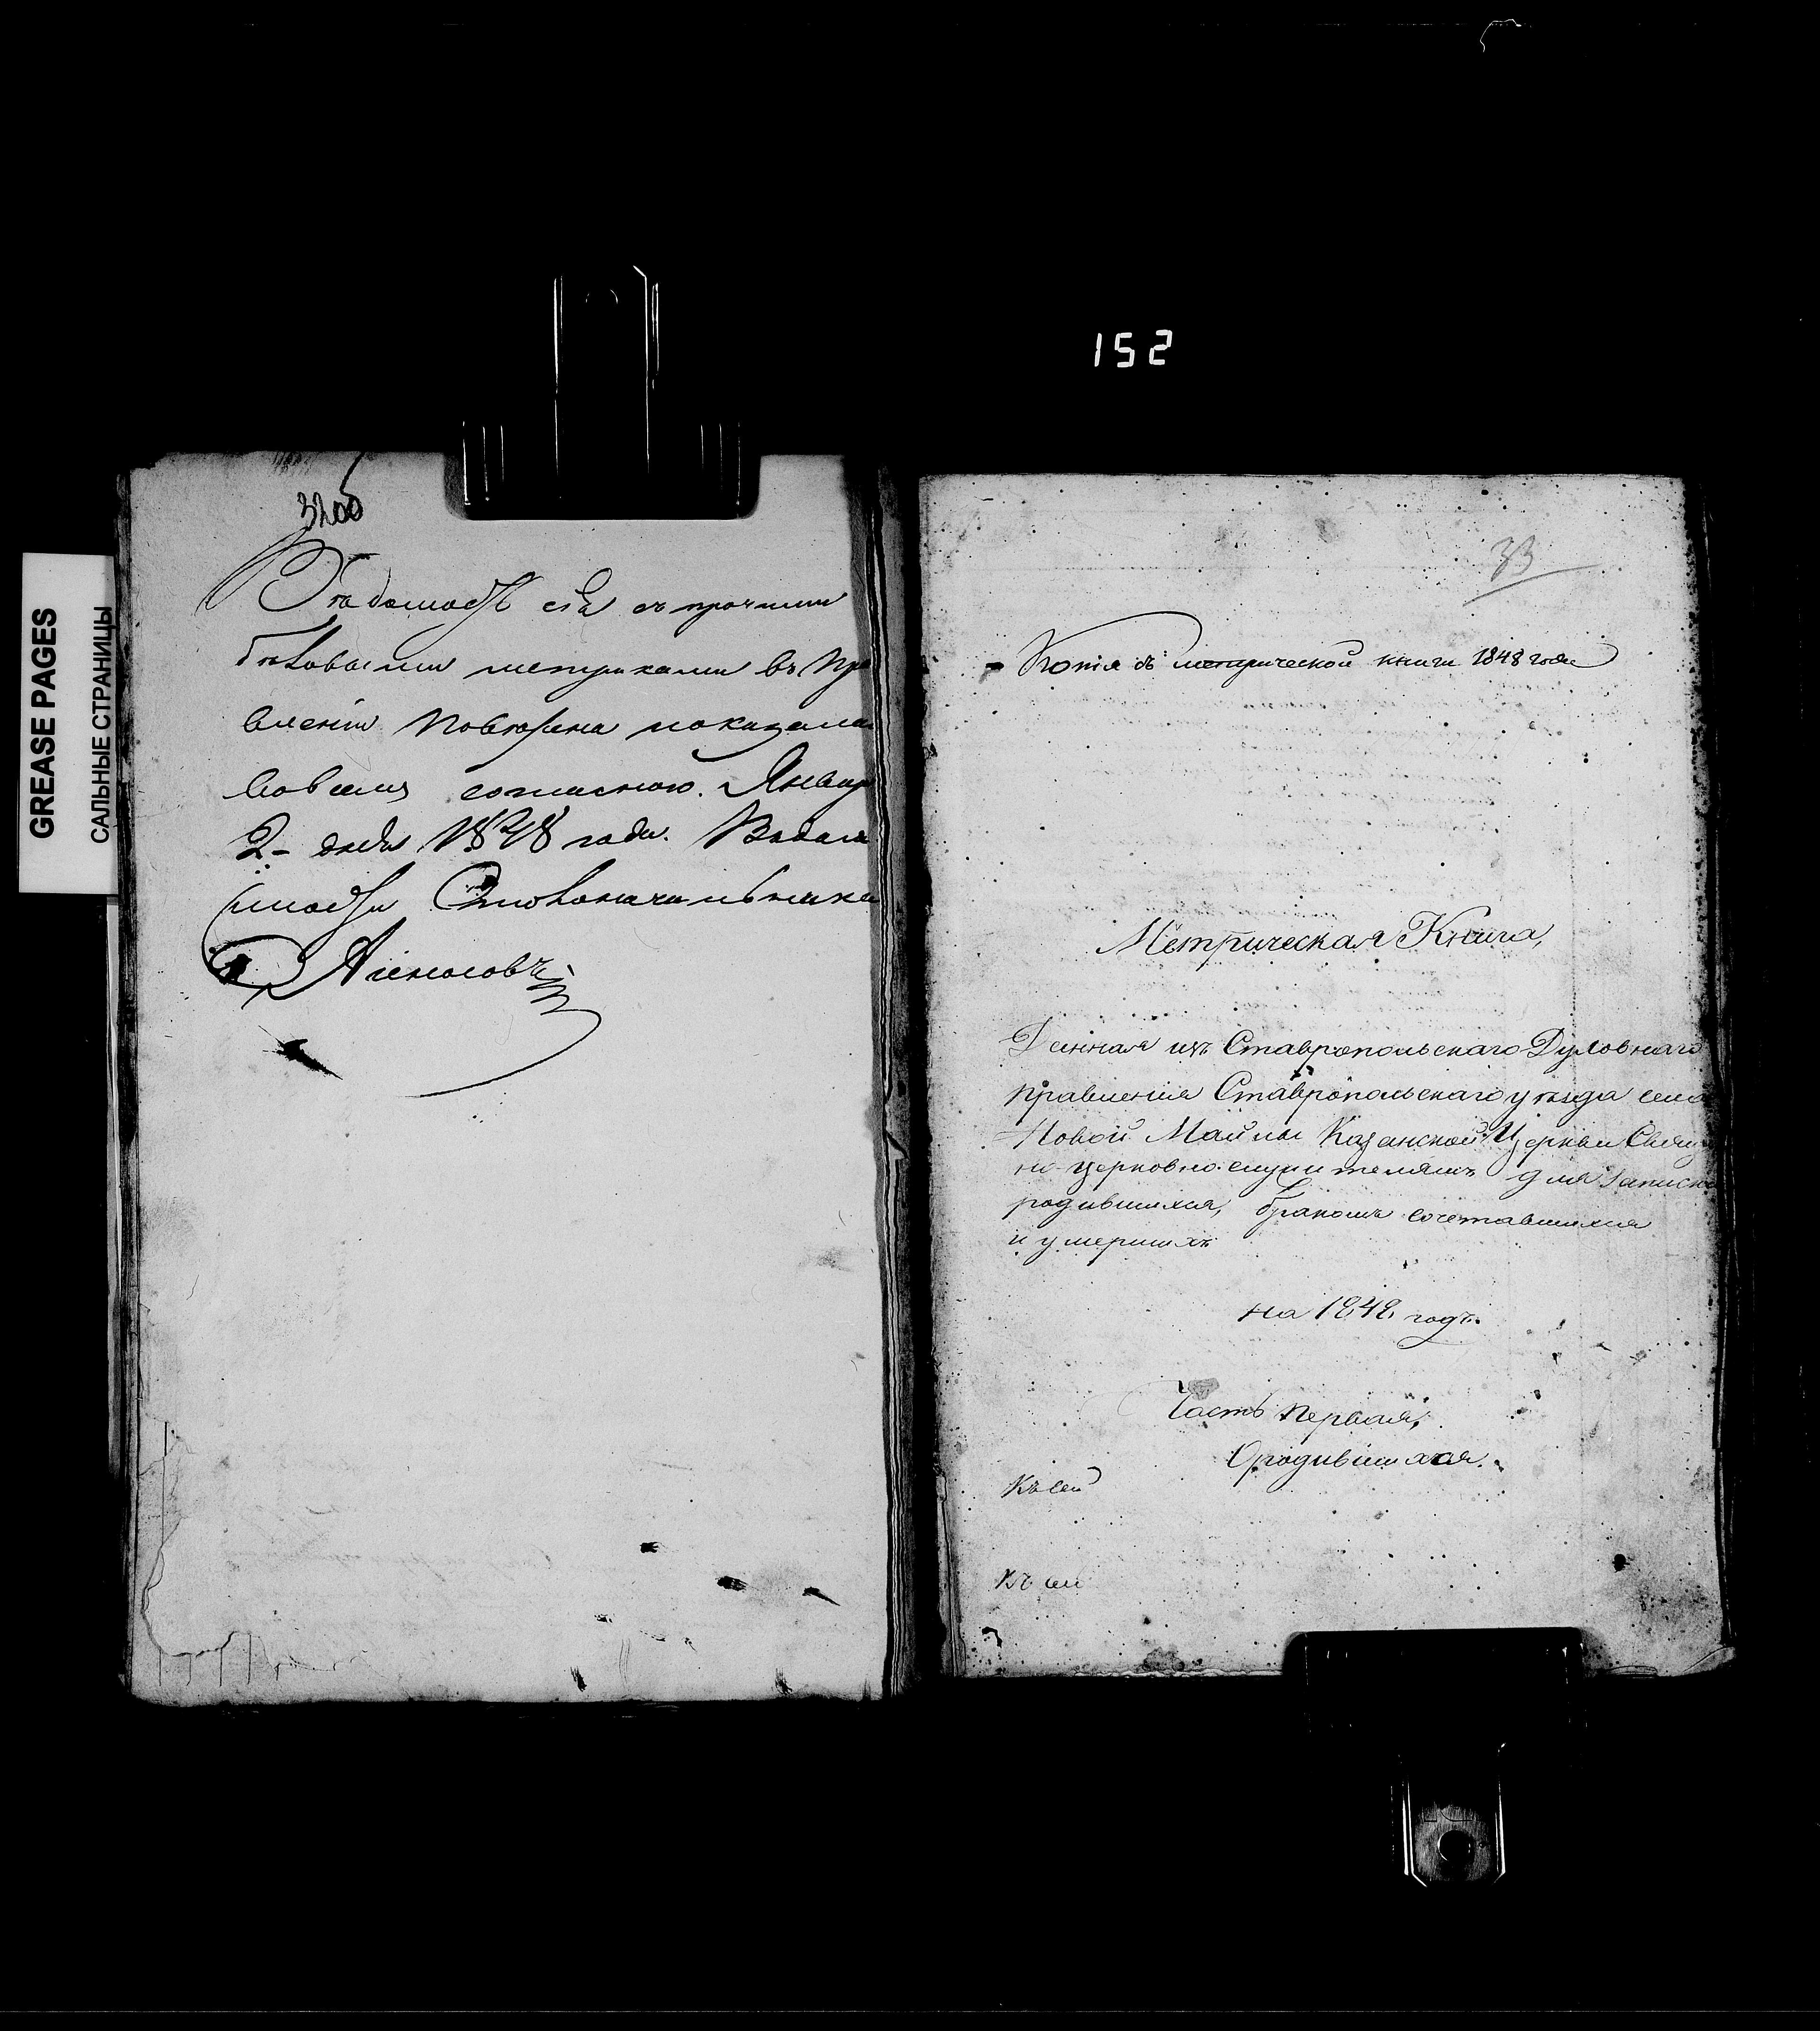 152
GREASE PAGES
САЛЬНЫЕ СТРАНИЦЫ
3200
Вѣдомость сія съ прочими
метриками въ Пра
вленіи повѣрена показала
согласною. Январ
2 дня 1848 года.
Столоначальника
33
Копія съ метрической книги 1848 года
Метрическая Книга,
Данная изъ Ставропольскаго Духовнаго
правленія Ставропольскаго уѣзда села
Новой Майны Казанской Церкви Свящ
но-церковно-служителямъ для записки
родившихся, бракомъ сочетавшихся
и умершихъ
на 1848 годъ.
Часть первая,
О родившихся.
Къ сей
Къ сей